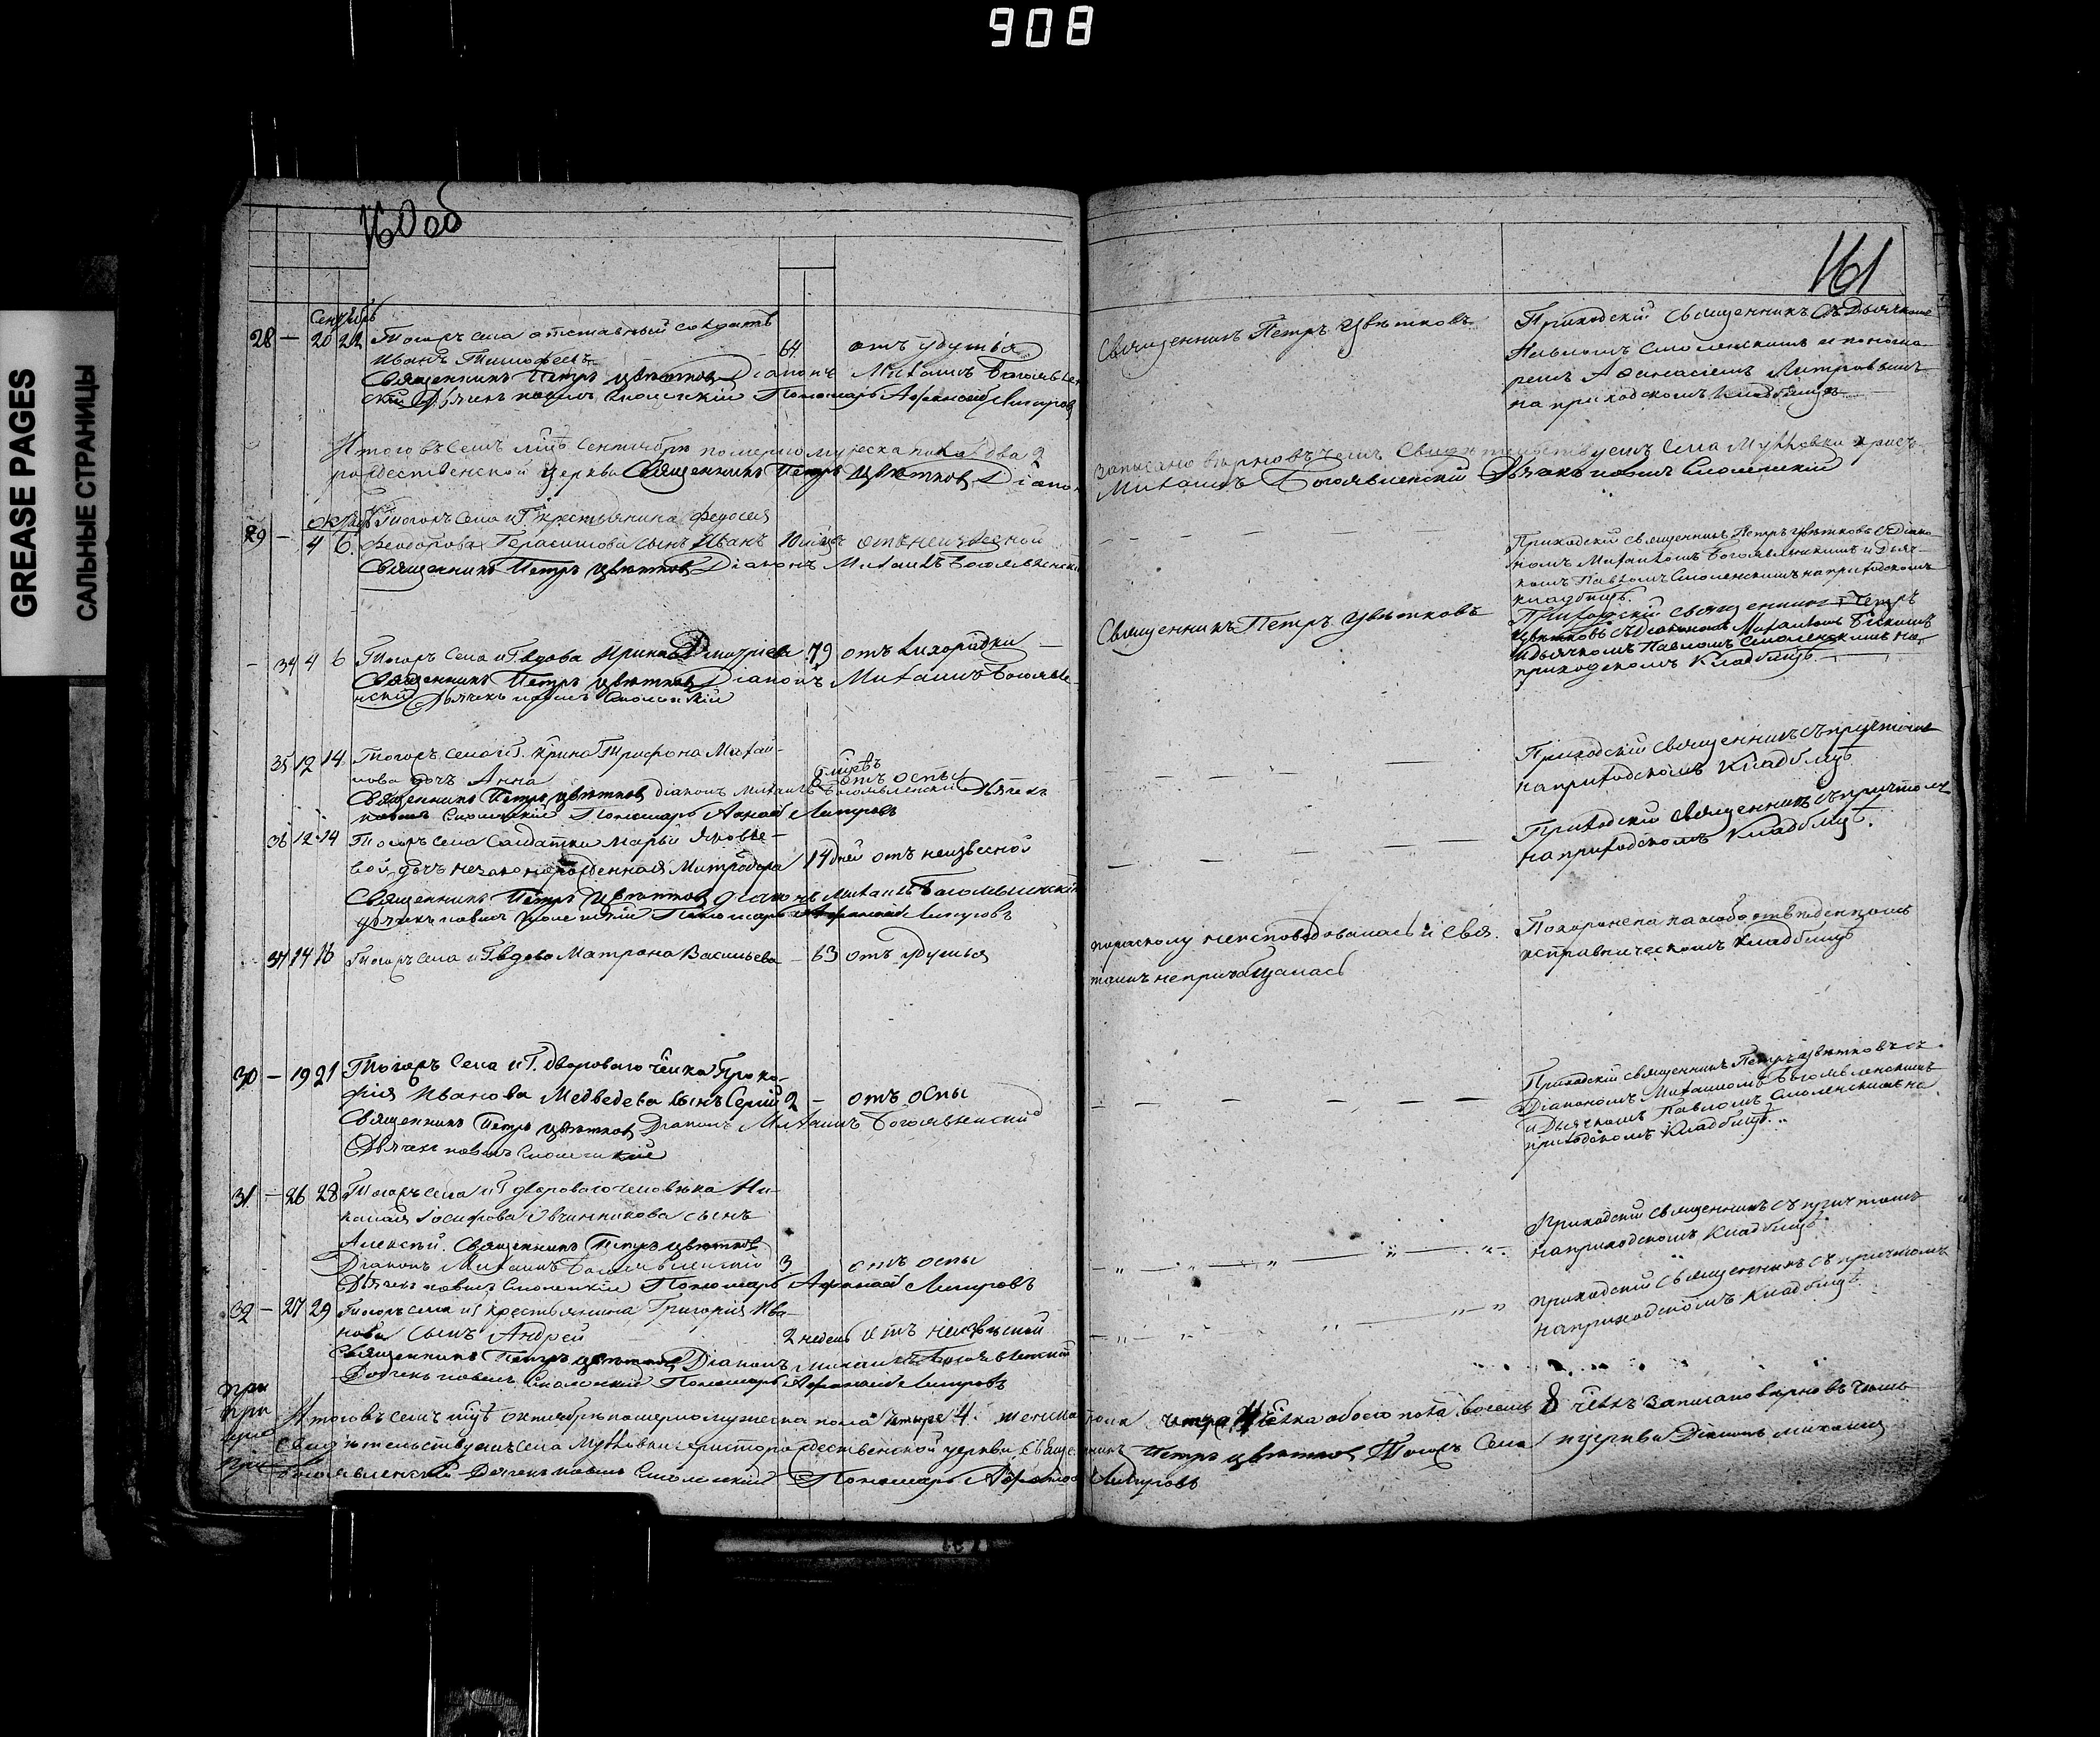 908
GREASE PAGES
САЛЬНЫЕ СТРАНИЦЫ
160 об
161
Сентябрь
28 — 20 22 Тогожъ села отставный солдатъ
Иванъ Тимофеевъ 64 отъ удушья
Священникъ Петръ Цвѣтковъ Діаконъ Михаилъ Богоявлен
скій Дьячекъ Павелъ Смоленскій Пономарь Афанасій
Священникъ Петръ Цвѣтковъ
Приходскій Священникъ съ Дьячкомъ
Павломъ Смоленскимъ и понома
ремъ Афанасіемъ
на приходскомъ кладбищѣ
Итого въ семъ мцѣ Сентябрѣ померло мужеска пола два 2
записано вѣрно въ чемъ Свидѣтельствуемъ села
рождественской церкви Священникъ Петръ Цвѣтковъ Діакон
Михаилъ Богоявленскій Дьячекъ Павелъ Смоленскій
29 — 4 6 Тогожъ села и Г. крестьянина Федосея
Феодорова Герасимова сынъ Иванъ 10 мцъ отъ неизвѣсной
Священникъ Петръ Цвѣтковъ Діаконъ Михаилъ Богоявленскі
Приходскій священникъ Петръ Цвѣтковъ съ Діако
номъ Михаиломъ Богоявленскимъ и Дьяч-
комъ Павломъ Смоленскимъ на приходскомъ
кладбищѣ.
— 34 4 6 Тогожъ села и Г вдова Ирина Дмитріева 79 отъ лихорадки
Священникъ Петръ Цвѣтковъ Діаконъ Михаилъ Богоявле-
нскій Дьячекъ Павелъ Смоленскій
Священникъ Петръ Цвѣтковъ
Приходскій священникъ Петръ
Цвѣтковъ съ Діакономъ Михаиломъ
и Дьячкомъ Павломъ Смоленскимъ на
приходскомъ кладбищѣ.
35 12 14 Тогожъ села и Г. Трифона Михай-
лова дочь Анна 6 мцевъ отъ оспы
Священникъ Петръ Цвѣтковъ Діаконъ Михаилъ Богоявленскій Дьячекъ
Павелъ Смоленскій Пономарь
Приходскій священникъ съ причтомъ
на приходскомъ кладбищѣ
36 12 14 Тогожъ села Салдатки Марьи Яковле-
вой дочь незаконнорожденная Митродора 14 дней отъ неизвесной
Священникъ Петръ Цвѣтковъ Діаконъ Михаилъ Богоявленскій
Дьячекъ Павелъ Смоленскій Пономарь Афанасій
Приходскій Священникъ съ причтомъ
на приходскомъ кладбищѣ.
37 14 16 Тогожъ села и Г вдова Матрона Васильева — 63 отъ удушья
по расколу неисповѣдовалась и Свя.
таинъ непричащалась
Похоронена на особо отведенномъ
кладбищѣ
30 — 19 21 Тогожъ села и Г. двороваго Проко-
фія Иванова Медведева сынъ Сергій 2 — отъ оспы
Священникъ Петръ Цвѣтковъ Діаконъ Михаилъ Богоявленскій
Дьячекъ Павелъ Смоленскій
Приходскій священникъ Петръ Цвѣтковъ съ
Діакономъ Михаиломъ Богоявленскимъ
и Дьячкомъ Павломъ Смоленскимъ на
приходскомъ кладбищѣ.
31 — 26 28 Тогожъ села и Г двороваго человѣка Ни-
колая Іосифова Овчинникова сынъ
Алексѣй. Священникъ Петръ Цвѣтковъ
Діаконъ Михаилъ Богоявленскій 3 отъ оспы
Дьячекъ Павелъ Смоленскій Пономарь Афанасій
Приходскій священникъ съ причтомъ
на приходскомъ кладбищѣ.
32 — 27 29 Тогожъ села и Г крестьянина Григорія Ива-
нова сынъ Андрей 2 недель отъ неизвѣсной
Священникъ Петръ Цвѣтковъ Діаконъ Михаилъ Богоявленскій
Дьячекъ Павелъ Смоленскій Пономарь Афанасій
приходскій священникъ съ причтомъ
на приходскомъ кладбищѣ.
Итого въ семъ мцѣ октябрѣ померло мужеска пола четыре 4. женска пола четыре 4 обоего пола восемь 8 записано вѣрно въ чемъ
Свидѣтельствуемъ села Христорождественской церкви Священникъ Петръ Цвѣтковъ Тогожъ села и церкви Діаконъ Михаилъ
Богоявленскій Дьячекъ Павелъ Смоленскій Пономарь